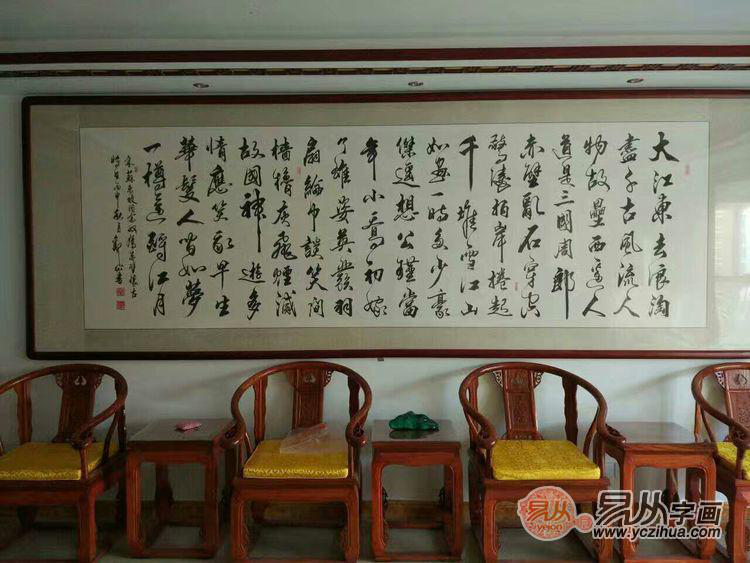 大江東去浪淘
盡千古風流人
物故壘西邊人
道是三國周郎
赤壁亂石穿空
驚濤拍岸捲起
千堆雪江山
如畫一時多少豪
傑遥想公瑾當
年小喬初嫁
了雄姿英發羽
扇綸巾談笑間
檣櫓灰飛煙滅
故國神遊多
情應笑我早生
華髮人如夢
一樽還酹江月
宋蘇東坡詞念奴嬌赤壁懷古
時在丙申秋月鄭書
易从
易从字画
www.yczihua.com